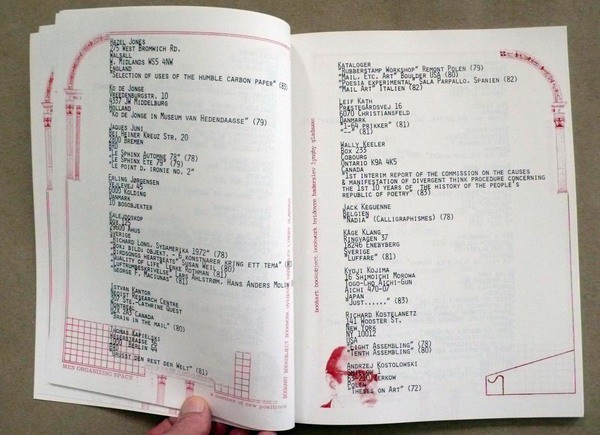 Hazel Jones
275 West Bromwich Rd.
Walsall
W. Midlands WS5 4NW
England
"Selection of uses of the humble carbon paper" (83)
Ko de Jonge
Vreedenburgstr. 10
4337 JW Middelburg
Holland
"Ko de Jonge in Museum van Hedendaagse" (79)
Jaques Juni
Bei Heiner Kreuz Str. 20
2800 Bremen
BRD
"Le Sphinx Automne 78" (78)
"Le Sphinx Ete 79" (79)
"Le point D. Ironie No. 2"
Erling Jørgensen
Vejlevej 45
6000 Kolding
Danmark
10 boobjekter
Kalejdoskop
Box
29600 Åhus
Sverige
"Richard Long, Sydamerika 1972" (78)
"Bok! Bild! Objekt. - 6 konstnärer kring ett tema"
"Birdsongs Heartbeats" Susan Weil (80)
"Quality of Life" Lenke Rothman (81)
"Luftrumsbeskrivelse" Lars Ahlström, Hans Anders Molin
"George F. Maciunas" (81)
Istvan Kantor
Neoist Research Centre
Ste-Catherine Ouest
Montreal
Canada
"Brain in the mail" (80)
Thomas Kapielski
Berlin
BRD
"Grüsst den Rest der Welt" (81)
MEN ORGANIZING SPACE
a number of new positions
Kataloger
"Rubberstamp Workshop" Remont Polen (79)
"Mail, Etc. Art" Boulder USA (80)
"Poesia Experimental" Sala Parpallo, Spanien (82)
"Mail Art" Italien (82)
Leif Kath
Præstegårdsvej 16
6070 Christiansfeld
Danmark
"1-64 Prikker" (81)
"-" (81)
Wally Keeler
Box 233
Cobourg
Ontario K9A 4K5
Canada
"1st interim report of the commission on the causes
& manifestation of divergent think procedure concerning
the 1st 10 years of the history of the people's
republic of poetry" (83)
Jack Keguenne
Belgien
"Nadia" (Calligraphismes) (78)
Kåge Klang
Ringvägen 37
18246 Enebyberg
Sverige
"Luffare" (81)
Kyoji Kojima
16 Shimoichi Morowa
Togo-Cho Aichi-Gun
Aichi 470-01
Japan
"Just......" (83)
Richard Kostelanetz
141 Wooster St.
New York
NY 10012
USA
"Eight Assembling" (78)
"Tenth Assembling" (80)
Andrzej Kostolowski
Polen
"Theses on Art" (72)